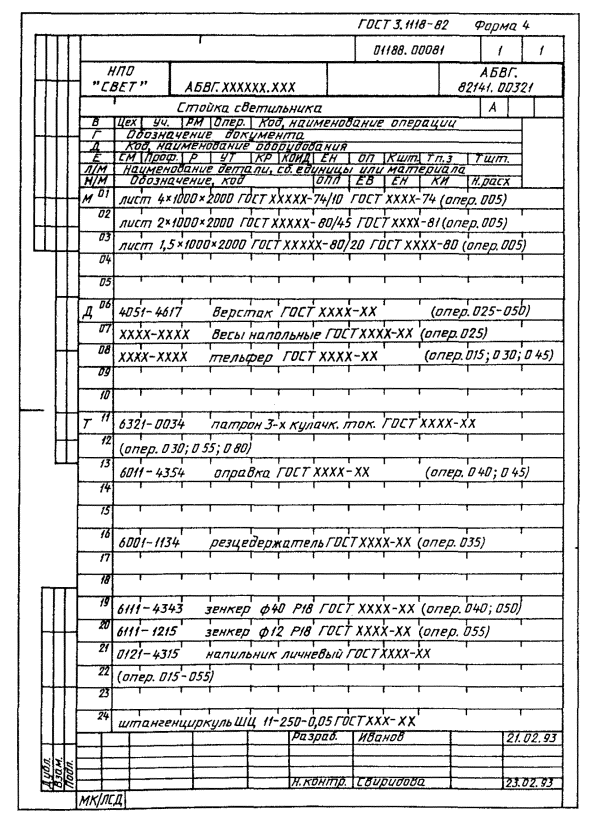 ГОСТ 3.1118-82 Форма 4
01188.00081 1 1
НПО "СВЕТ" АБВГ.XXXXXX.XXX АБВГ. 82141.00321
Стойка светильника А
В Цех Уч. РМ Опер. Код, наименование операции
Г Обозначение документа
Д Код, наименование оборудования
Е СМ Проф. Р УТ КР КОИД ЕН ОП Кшт. Тп.з Тшт.
Л/М Наименование детали, сб. единицы или материала
Н/М Обозначение, код ОПП ЕВ ЕН КИ Н.расх
М 01 лист 4×1000×2000 ГОСТ XXXXX-74/10 ГОСТ XXXX-74 (опер. 005)
02 лист 2×1000×2000 ГОСТ XXXXX-80/45 ГОСТ XXXX-81 (опер. 005)
03 лист 1,5×1000×2000 ГОСТ XXXXX-80/20 ГОСТ XXXX-80 (опер. 005)
04
05
Д 06 4051-4617 Верстак ГОСТ XXXX-XX (опер. 025-050)
07 XXXX-XXXX Весы напольные ГОСТ XXXX-XX (опер. 025)
08 XXXX-XXXX тельфер ГОСТ XXXX-XX (опер. 015; 030; 045)
09
10
Т 11 6321-0034 патрон 3-х кулачк. ток. ГОСТ XXXX-XX
12 (опер. 030; 055; 080)
13 6011-4354 оправка ГОСТ XXXX-XX (опер. 040; 045)
14
15
16 6001-1134 резцедержатель ГОСТ XXXX-XX (опер. 035)
17
18
19 6111-4343 зенкер ф40 Р18 ГОСТ XXXX-XX (опер. 040; 050)
20 6111-1215 зенкер ф12 Р18 ГОСТ XXXX-XX (опер. 055)
21 0121-4315 напильник личневый ГОСТ XXXX-XX
22 (опер. 015-055)
23
24 штангенциркуль ШЦ 11-250-0,05 ГОСТ XXX-XX
Разраб. Иванов 21.02.93
Дубл.
Взам.
Подл.
Н.контр. Свиридова 23.02.93
МК/ЛСД